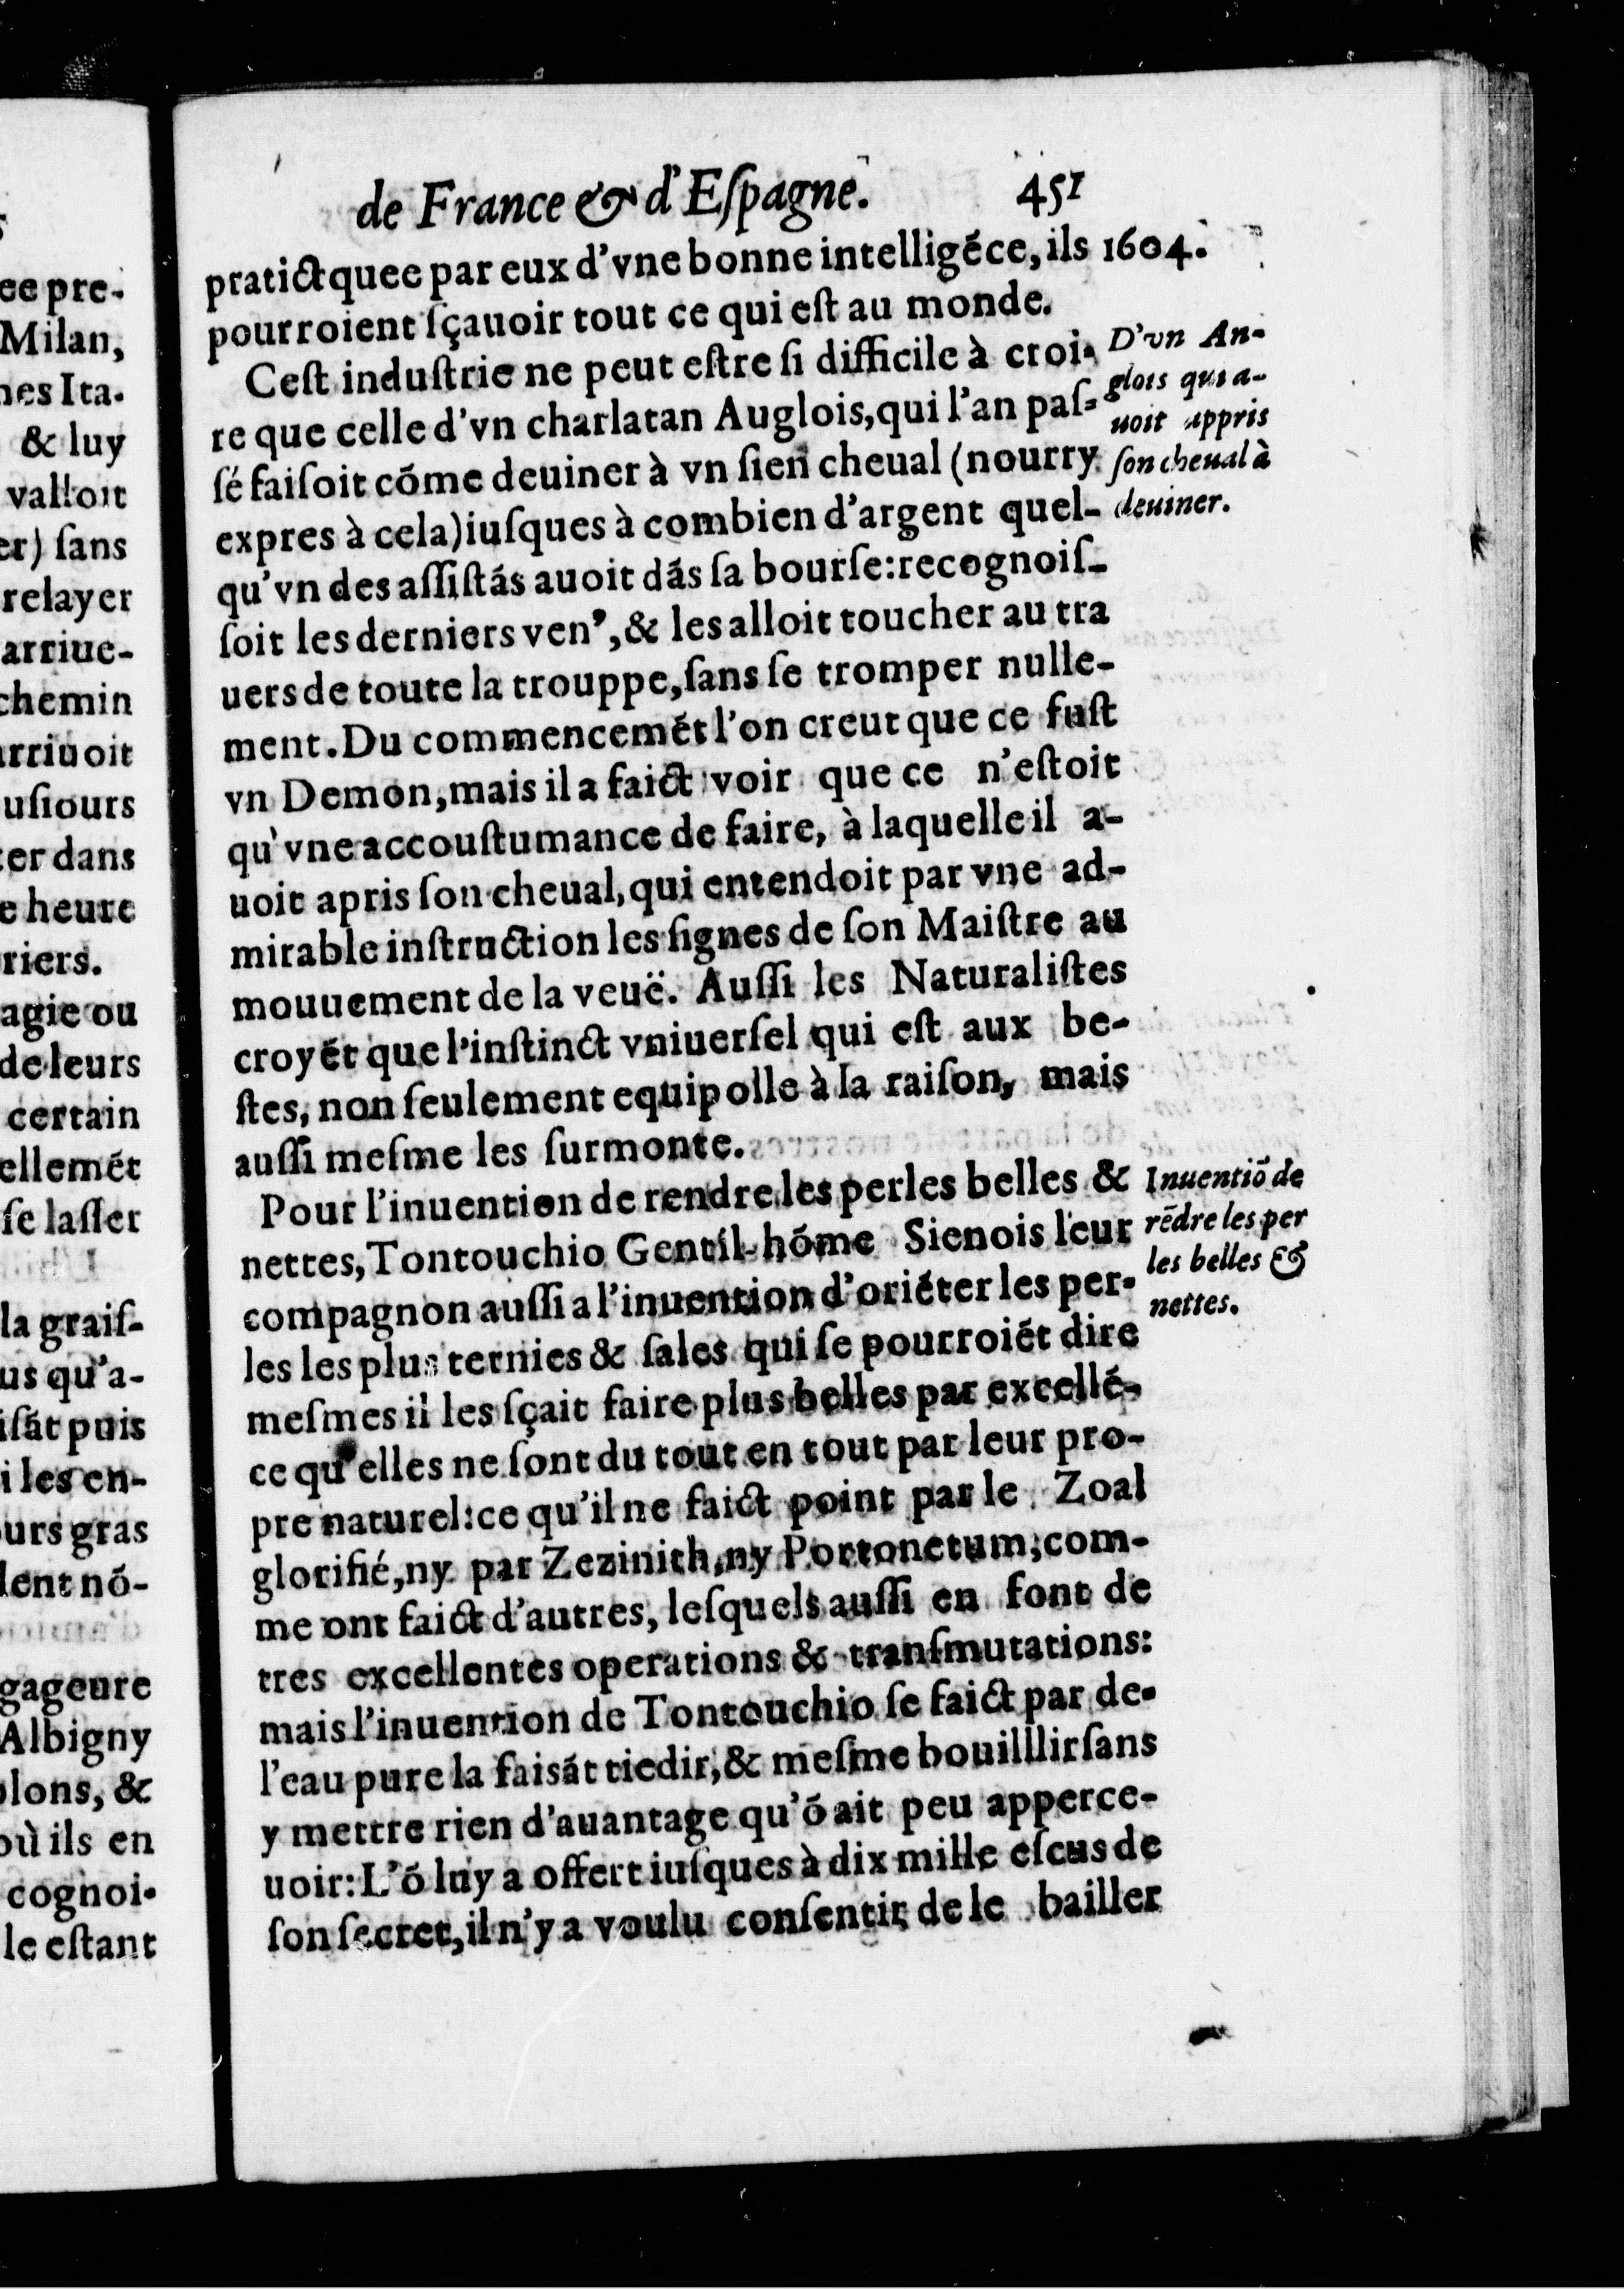 de France & d'Eſpagne. 451
pratictquee par eux d'vne bonne intelligẽce, ils 1604.
pourroient ſçauoir tout ce qui eſt au monde.
Ceſt induſtrie ne peut eſtre ſi difficile à croi-
re que celle d'vn charlatan Auglois, qui l'an paſ-
ſé faiſoit cõme deuiner à vn ſien cheual (nourry
expres à cela) iuſques à combien d'argent quel-
qu'vn des aſſiſtãs auoit dãs ſa bourſe: recognoiſ-
ſoit les derniers ven', & les alloit toucher au tra
uers de toute la trouppe, ſans ſe tromper nulle-
ment. Du commencemẽt l'on creut que ce fuſt
vn Demon, mais il a faict voir que ce n'eſtoit
qu'vne accouſtumance de faire, à laquelle il a-
uoit apris ſon cheual, qui entendoit par vne ad-
mirable inſtruction les ſignes de ſon Maiſtre au
mouuement de la veuë. Auſſi les Naturaliſtes
croyẽt que l'inſtinct vniuerſel qui eſt aux be-
ſtes, non ſeulement equipolle à la raiſon, mais
auſſi meſme les ſurmonte.
D'vn An-
glois qui a-
uoit appris
ſon cheual à
deuiner.
Pour l'inuention de rendre les perles belles &
nettes, Tontouchio Gentil-hõme Sienois leur
compagnon auſſi a l'inuention d'oriẽter les per-
les les plus ternies & ſales qui ſe pourroiẽt dire
meſmes il les ſçait faire plus belles par excellẽ-
ce qu'elles ne ſont du tout en tout par leur pro-
pre naturel: ce qu'il ne faict point par le Zoal
glorifié, ny par Zezinith, ny Portonetum; com-
me ont faict d'autres, leſquels auſſi en font de
tres excellentes operations & tranſmutations:
mais l'inuention de Tontouchio ſe faict par de-
l'eau pure la faisãt tiedir, & meſme bouilllir ſans
y mettre rien d'auantage qu'õ ait peu apperce-
uoir: L'õ luy a offert iuſques à dix mille eſcus de
ſon ſecret, il n'y a voulu conſentir, de le bailler
Inuentiõ de
rẽdre les per
les belles &
nettes.